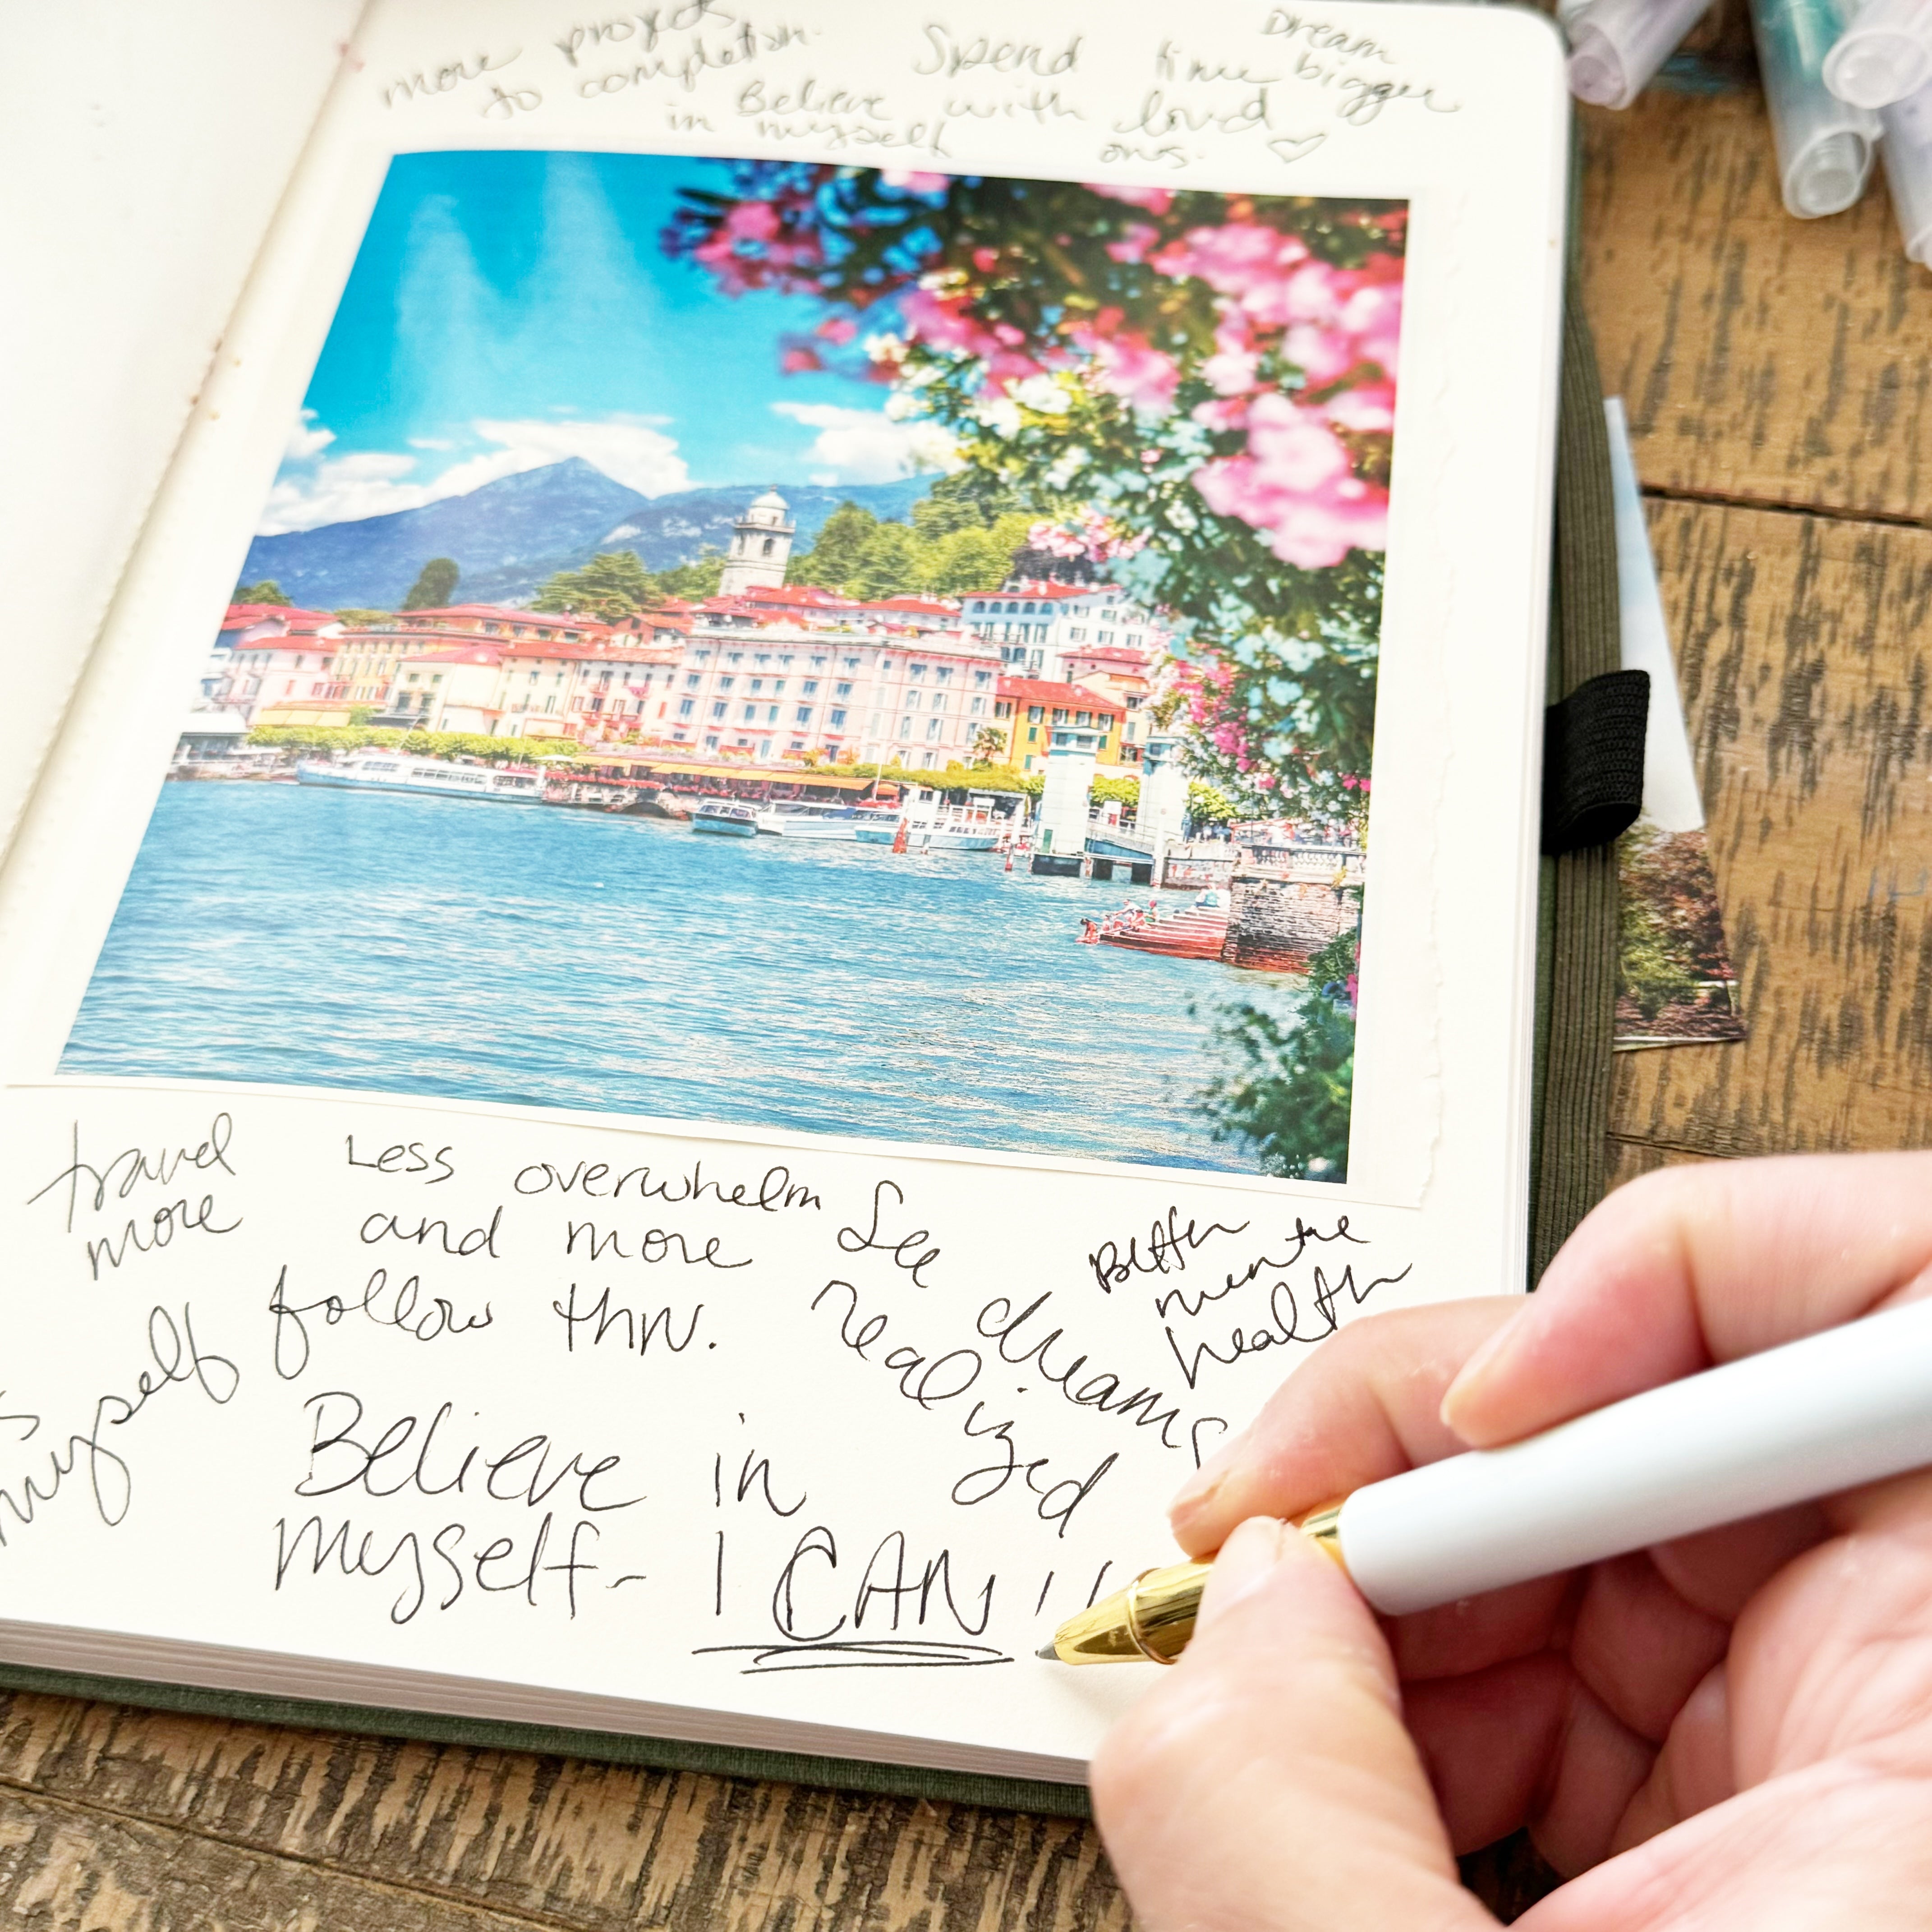 more projects
to completion.
Believe
in myself
Spend time
with loved
ones.
Dream
bigger
travel
more
Less overwhelm
and more
follow thru.
See
dreams
realized
Better
health
myself
Believe in
myself- I CAN!!